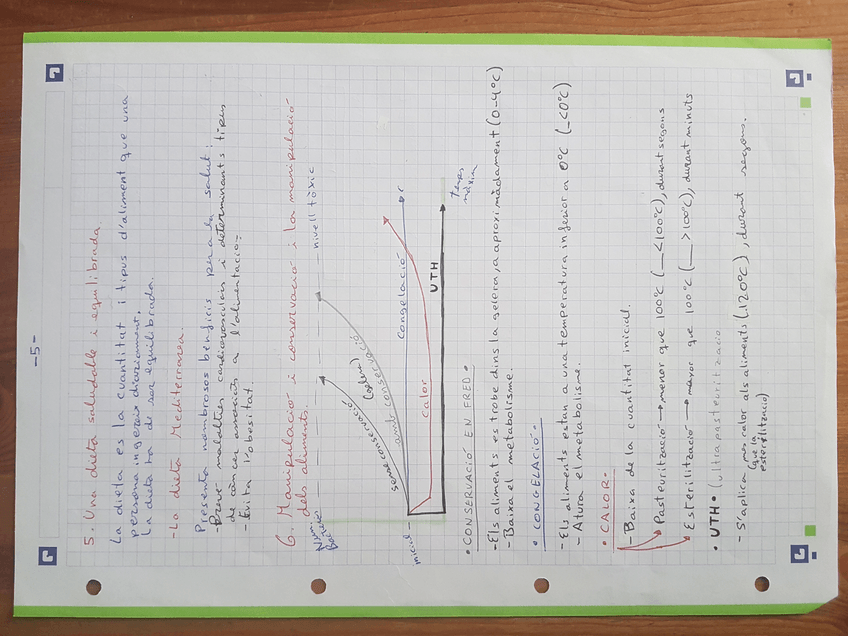 -5-
5. Una dieta saludable i equilibrada.
La dieta es la cuantitat i tipus d'aliment que una
persona ingereix diariament.
La dieta ha de ser equilibrada.
-La dieta Mediterranea.
Presenta nombrosos beneficis per a la salut:
-Preve malalties cardiovasculars i determinants tipus
de càncer associats a l'alimentació.
-Evita l'obesitat.
6. Manipulació i conservació i la manipulació
dels aliments.
nivell tòxic
inicial
sense conservació
amb conservació
(nevera)
Congelació
calor
UTH
temps
• CONSERVACIÓ EN FRED •
-Els aliments es trobe dins la gelera, a aproximàdament (0-4ºC)
-Baixa el metabolisme.
• CONGELACIÓ.
-Els aliments estan a una temperatura inferior a 0ºC (_<0ºC)
-Atura el metabolisme.
• CALOR •
-Baixa de la cuantitat inicial.
Pasteurització → menor que 100ºC (__<100ºC), durant segons
Esterilització → major que 100ºC (__>100ºC), durant minuts
• UTH • (ultrapasteurització
-S'aplica mes calor als aliments (120ºC), durant segons.
(que la
esterilització)